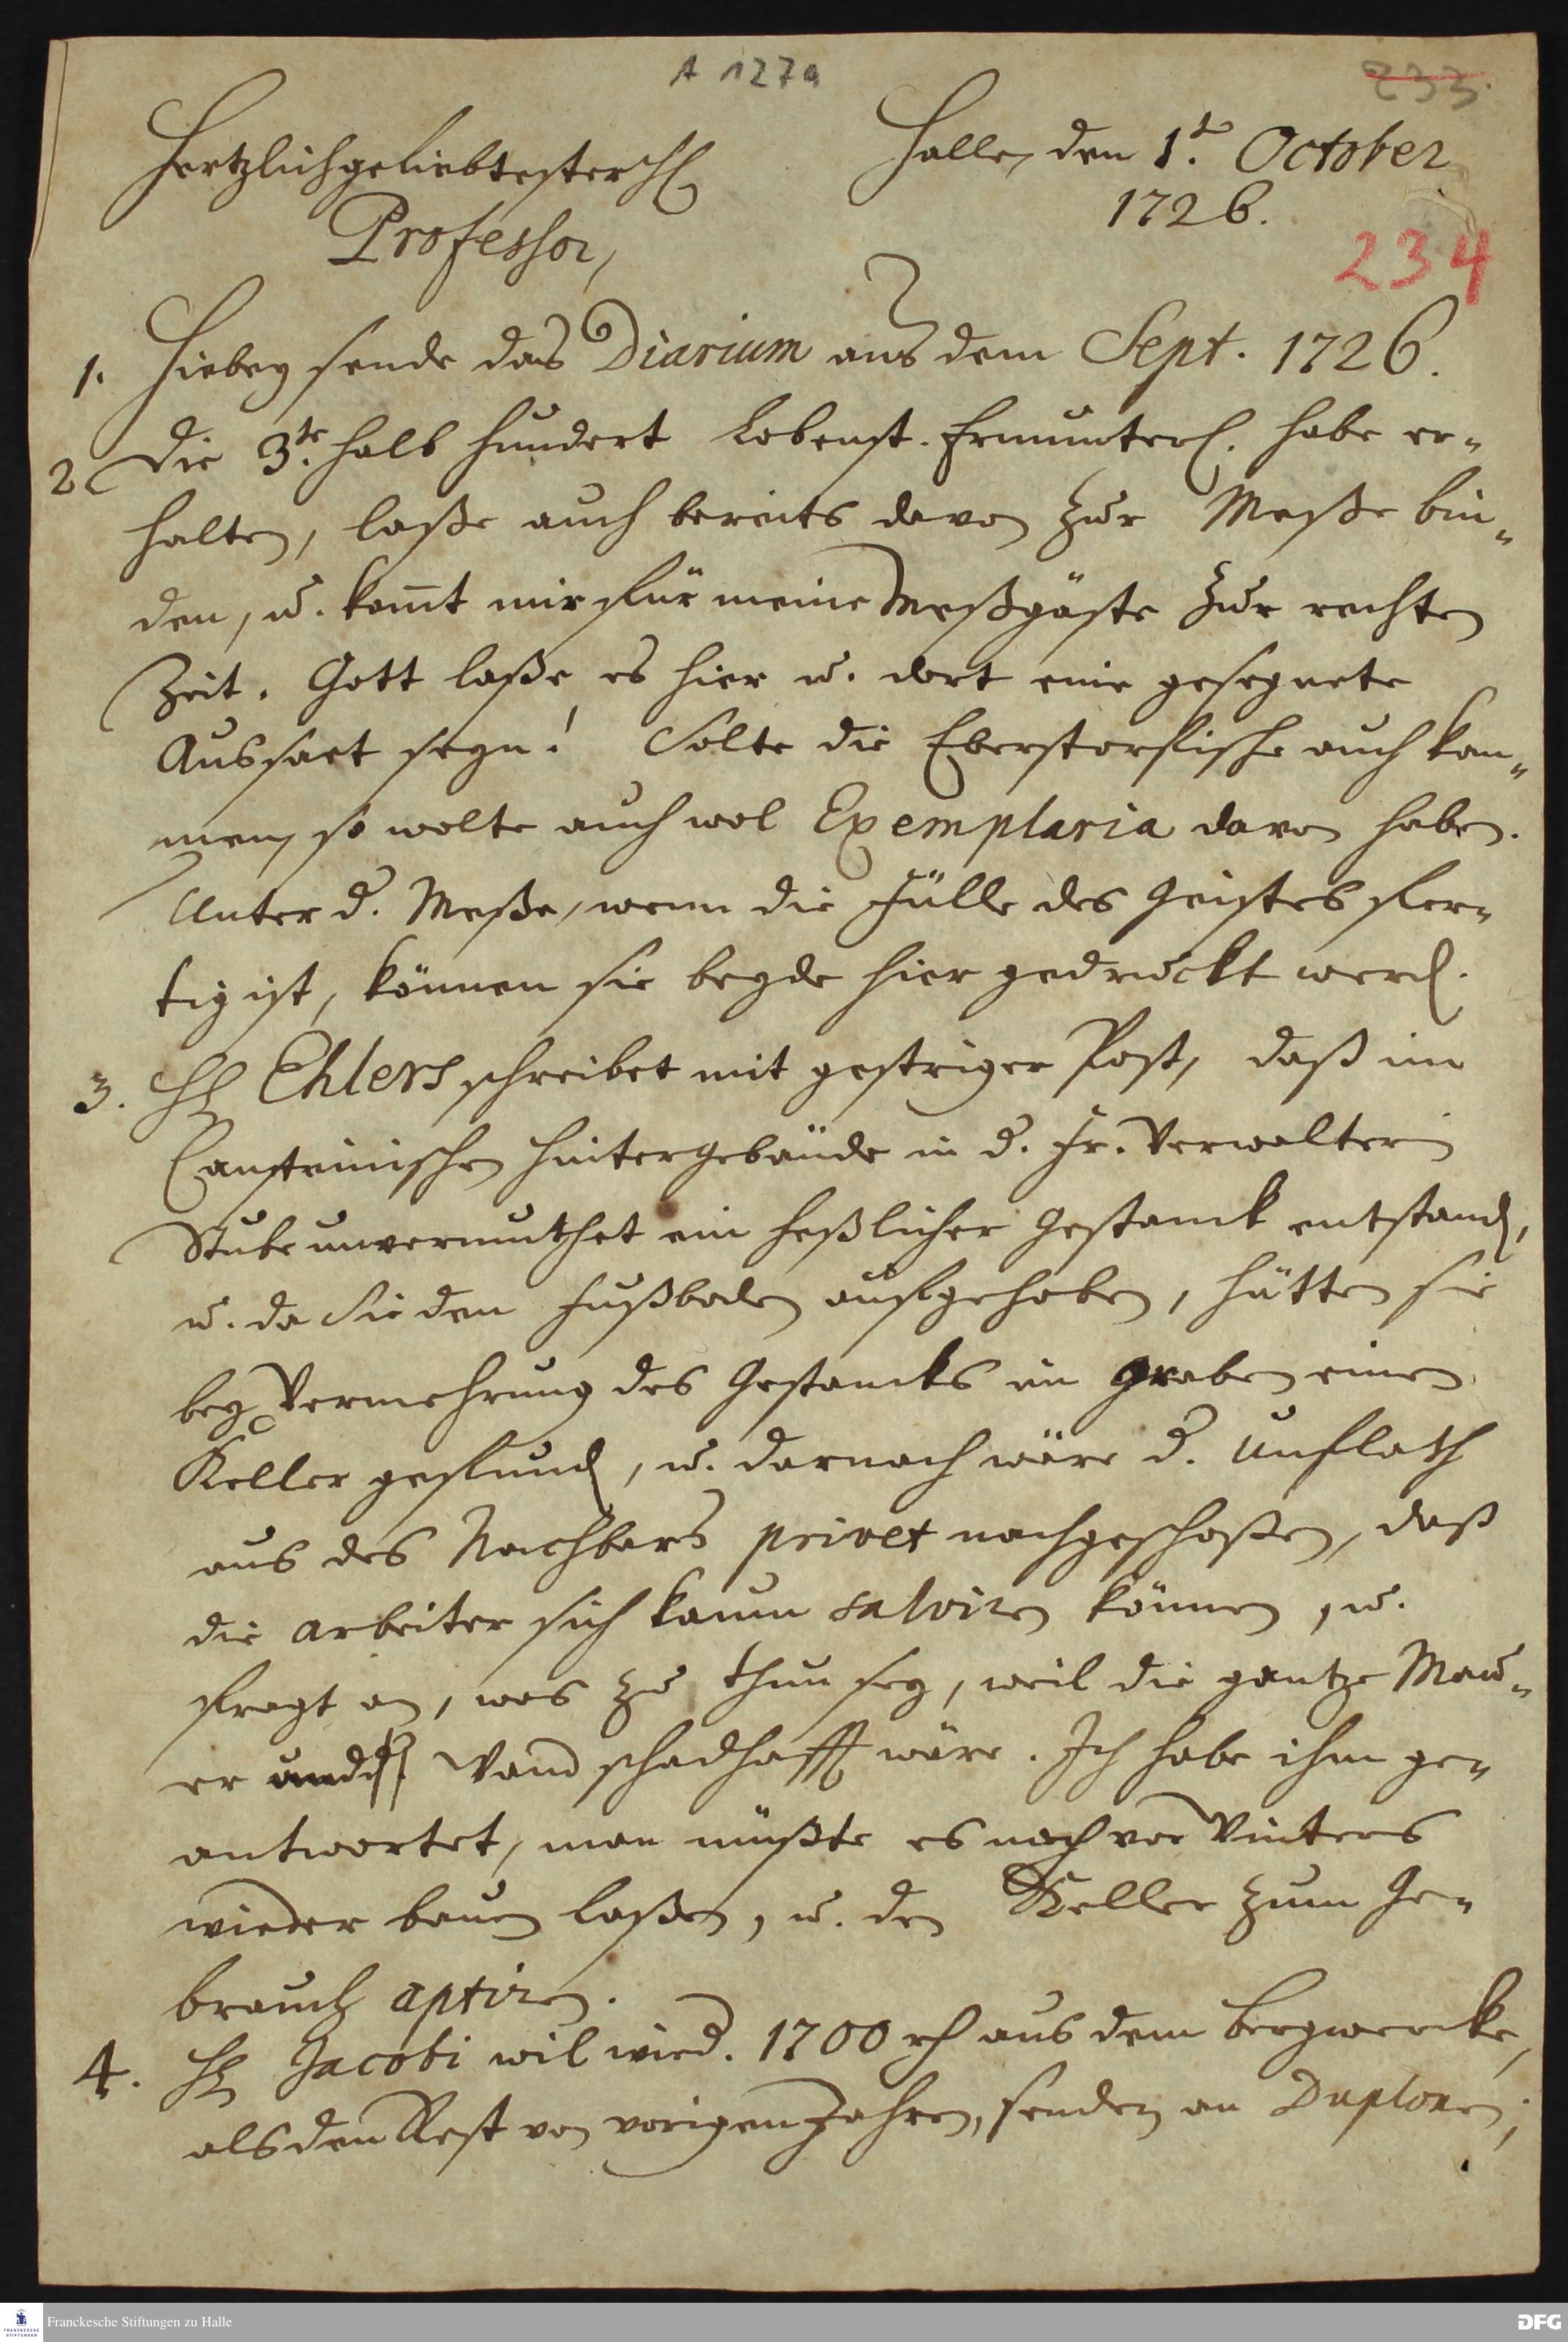 A 127a
233.
Halle, den 1.t October
1726.
234
Hertzlichgeliebtester H.
Professor,
1. Hiebey sende das Diarium aus dem Sept. 1726.
2. Die 3.te halb hundert Lobenst. Ermunter. habe er-
halten, laße auch bereits davon zur Meße bin-
den, u. komt mir für meine Meßgäste zur rechten
Zeit. Gott laße es hier u. dort eine gesegnete
Aussaet seyn! Solte die Eberstorfische auch kom-
men, so wolte auch wol Exemplaria davon haben.
Unter d. Meße, wenn die Fülle des Geistes fer-
tig ist, können sie beyde hier gedruckt werd.
3. H. Ehlers schreibet mit gestriger Post, daß im
Cansteinischen Hintergebäude in d. Fr. Verwalterin
Stube unvermuthet ein heßlicher Gestanck entstand,
u. da Sie den Fußboden aufgehoben, hätten sie
bey Vermehrung des Gestancks im graben einen
Keller gefund, u. darnach wäre d. Unflath
aus des Nachbars privet nachgeschoßen, daß
die arbeiter sich kaum salviren können, u.
fragt an, was zu thun sey, weil die gantze Mau-
er und Wand schadhafft wäre. Ich habe ihm ge-
antwortet, man müßte es noch vor Winters
wieder bauen laßen, u. den Keller zum Ge-
brauch aptiren.
4. H. Jacobi wil wied. 1700 rh aus dem Bergwercke,
als den Rest von vorigen Jahren, senden an Duplonen;
Franckesche Stiftungen zu Halle
DFG